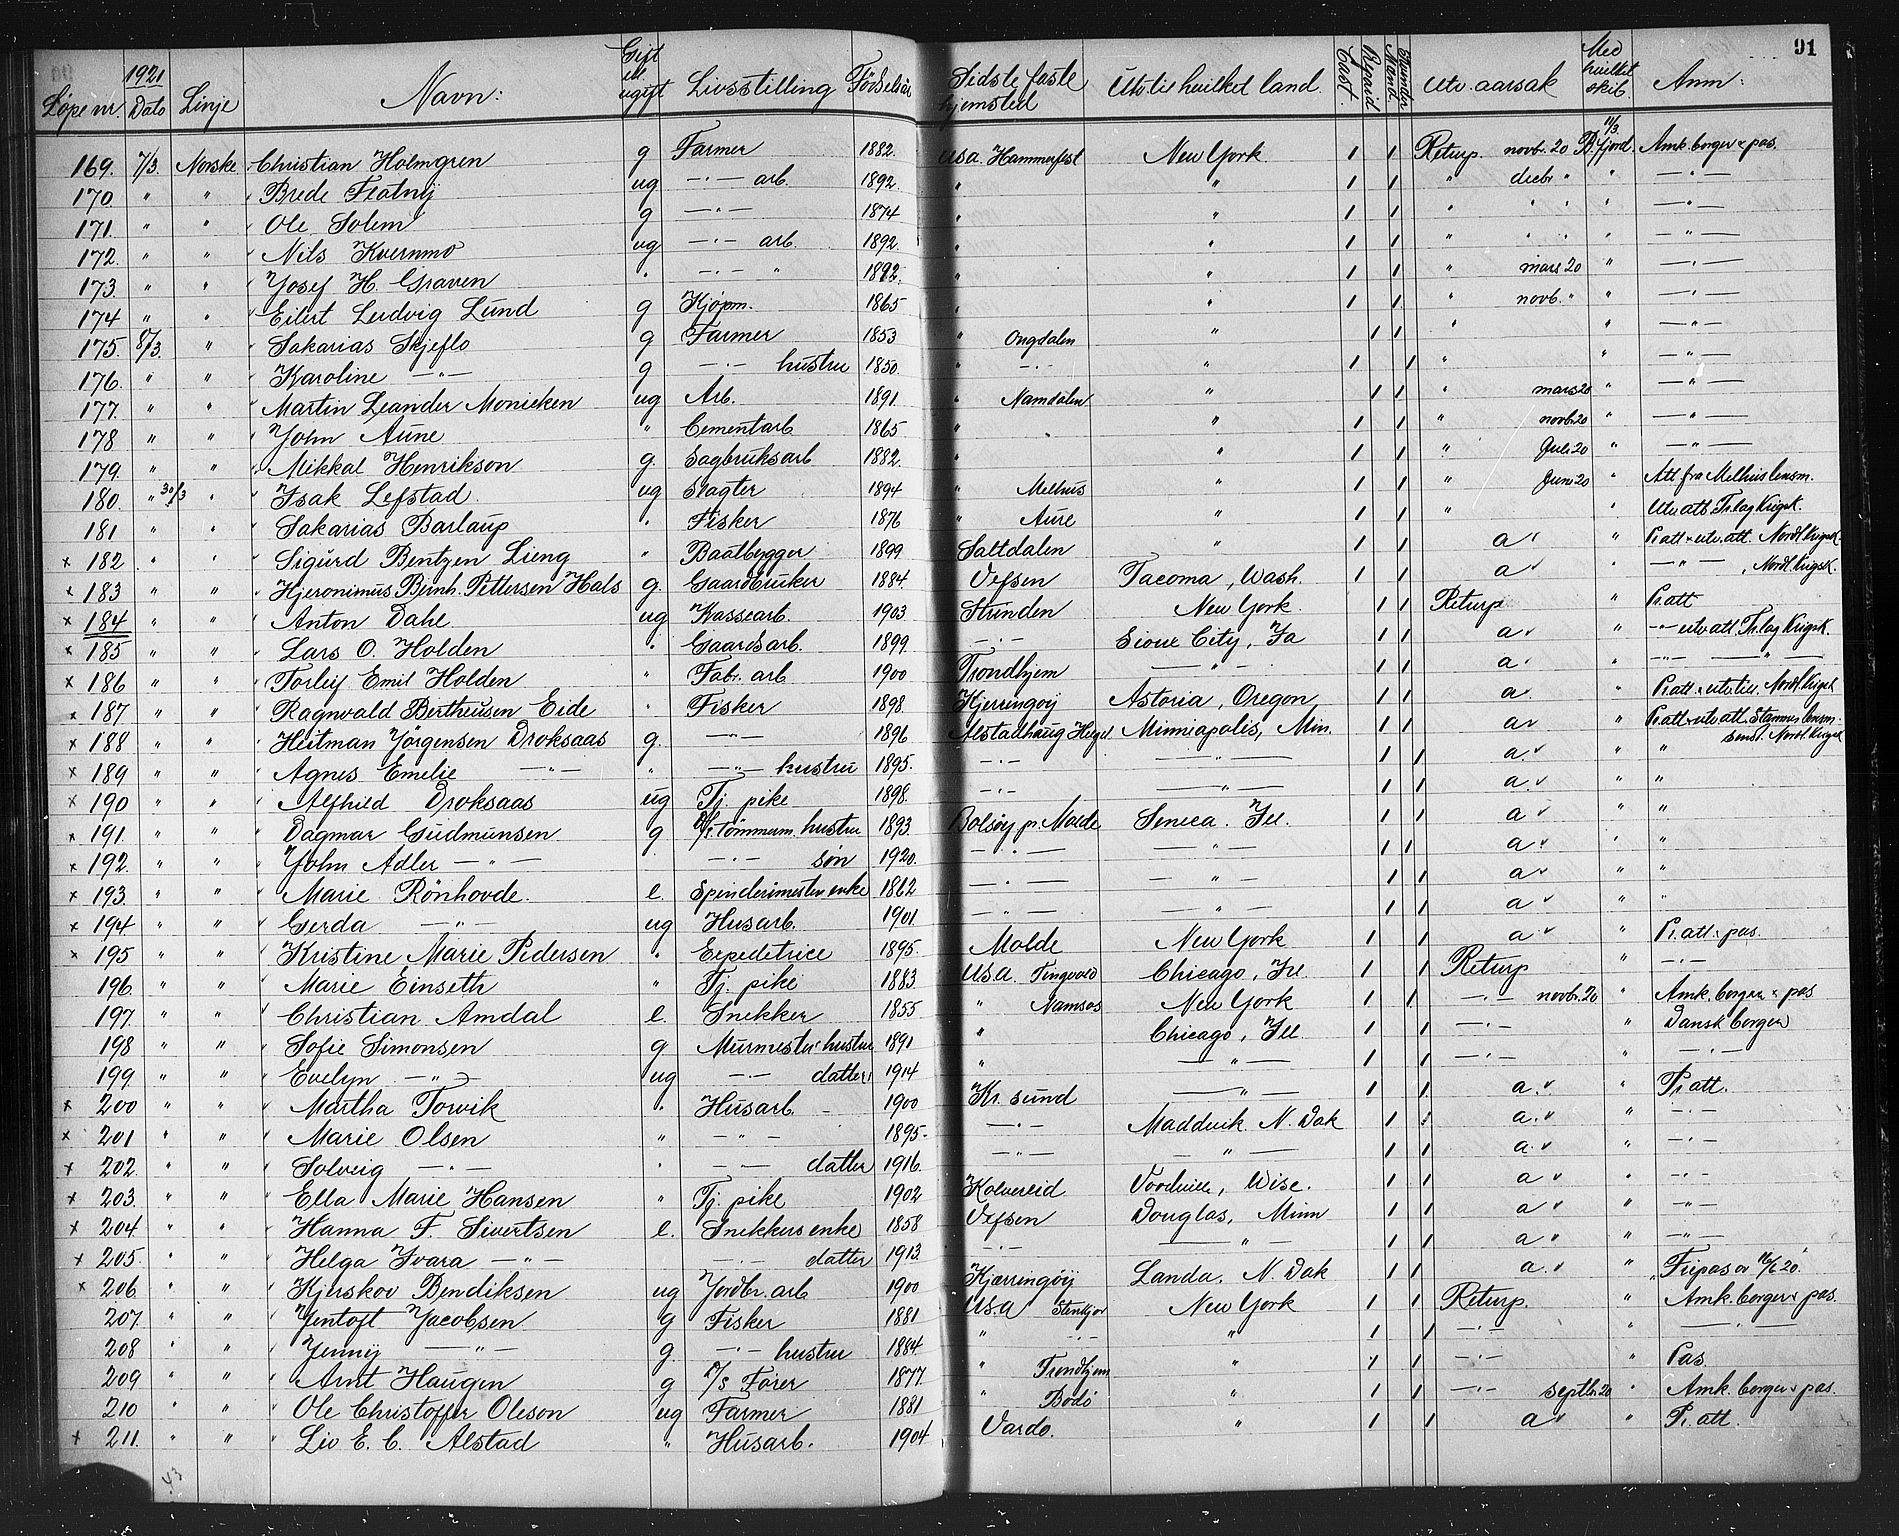 91
Løpe nr. 1921 Dato Linje Navn: Gift el. ugift Livsstilling Fødselsår Sidste faste hjemsted Utv. til hvilket land. Utv. aarsak Med hvilket skib. Anm:
169. 7/3. Norske Christian Holmgren g Farmer 1882. USA Hammerfest New York 1 1 Returp. novbr. 20 11/3. B.fjord. Amk. borger & pas.
170. " " Brede Flatnij ug -"- arb. 1892. " " 1 1 " decbr " " -"-
171. " " Ole Solem g -"- 1874 " " 1 1 " " " " -"-
172. " " Nils Kvernmo ug -"- arb. 1892. " " 1 1 " " " " -"-
173. " " Josef H. Graven " -"- " 1892. " " 1 1 " mars 20 " -"-
174 " " Eilert Ludvig Lund g Kjøpm. 1865 " " 1 1 " novb. " " -"-
175. 8/3. " Sakarias Skjeflo g Farmer 1853 " Ongdalen " 1 1 " " -"-
176. " " Karoline -"- g -"- hustru 1850. " -"- " 1 1 " " -"-
177. " " Martin Leander Monicken ug Arb. 1891. " Namdalen " 1 1 " mars 20 " -"-
178 " " John Aune " Cementarb 1865 " " 1 1 " novbr. 20 " -"-
179. " " Mikkal Henrikson g. Sagbruksarb 1882. " " 1 1 " Juli 20 " -"-
180. " 30/3 " Isak Lefstad. ug Slagter 1894 " Melhus " 1 1 " Juni 20 " Att. fra Melhus lensm.
181 " " Sakarias Barlaup " Fisker 1876 " Aure " 1 1 " " Utv. att. Tr.lag Krigsk.
x 182 " " Sigurd Bentzen Lieng " Baatbygger 1899 Saltdalen " 1 1 a " Pr. att & utv. att. Nordl. Krigsk.
x 183 " " Hjeronimus Bernh. Pettersen Hals g. Gaardbruker 1884. Vefsen Tacoma, Wash. 1 1 a " -"- , Nordl. Krigsk.
x 184 " " Anton Dahl ug Kassearb. 1903 Strinden New York. 1 1 Returp " Pr. att
x 185 " " Lars O. Holden " Gaardsarb. 1899. -"- Sioux City, Ia 1 1 a " -"- utv. att. Tr.lag Krigsk.
x 186 " " Torleif Emil Holden " Fabr. arb 1900 Trondhjem -"- 1 1 a " -"- -"-
x 187 " " Ragnvald Bertheusen Eide " Fisker 1898. Kjerringøy Astoria, Oregon 1 1 a " Pr. att & utv. till. Nordl. Krigsk
x 188 " " Heitman Jørgensen Droksaas g. -"- 1896 Alstadhaug Helgel. Minniapolis, Min. 1 1 a " Pr. att & utv. att. Stamnes lensm. samt Nordl. Krigsk
x 189 " " Agnes Emelie -"- " -"- hustru 1895. -"- -"- 1 1 a " "
x 190 " " Alfhild Droksaas ug Tj. pike 1898. -"- -"- 1 1 a " "
x 191. " " Dagmar Gudmunsen g Tømmerm. hustru 1893. Bolsøy pr. Molde Seneca. Ill. 1 1 a " "
x 192. " " John Adler -"- " -"- søn 1920. -"- -"- 1 1 a " "
x 193. " " Marie Rønhovde. e. Spinderimester enke 1862 -"- -"- 1 1 a " "
x 194 " " Gerda -"- ug Husarb. 1901. -"- -"- 1 1 a " "
x 195 " " Kristine Marie Pedersen " Expeditrice 1895. Molde New York 1 1 a " Pr. att. & pas.
196. " " Marie Einseth " Tj. pike 1883 USA. Tingvold Chicago, Ill. 1 1 Returp " -"-
197. " " Christian Amdal e. Snekker 1855 " Namsos New York 1 1 -"- novbr. 20 " Amk. borger & pas
198 " " Sofie Simonsen g Murmester hustru 1891 " Chicago, Ill. 1 1 -"- " Dansk borger
199. " " Evelyn -"- ug -"- datter 1914 " -"- 1 1 -"- " -"-
x 200 " " Martha Torvik " Husarb. 1900 Kr. sund -"- 1 1 a " Pr. att.
x 201 " " Marie Olsen " -"- 1895. -"- Maddvik. N. Dak 1 1 a " -"-
x 202. " " Solveig -"- " -"- datter 1916. -"- -"- 1 1 a " -"-
x 203. " " Ella Marie Hansen " Tj. pike 1902 Kolvereid Voodville, Wisc. 1 1 a " -"-
x 204. " " Hanna F. Sivertsen e. Snekkers enke 1858 Vefsen Douglas, Minn 1 1 a " -"-
x 205. " " Helga Ivara -"- -"- datter 1913. -"- -"- 1 1 a " -"-
x 206 " " Hjerskov Bendiksen ug Jordbr. arb 1900 Kjærringøy Landa. N. Dak 1 1 a " Fripas av 16/6 20.
207. " " Jentoft Jacobsen g Fisker 1881 USA Stenkjer New York 1 1 Returp. " Amk. borger & pas.
208 " " Jenny -"- g. -"- hustru 1884. " -"- " 1 1 -"- " -"-
209 " " Arnt Haugen g D/S Fører 1877. " Trondhjem " 1 1 -"- " Pas.
210 " " Ole Christoffer Oleson ug Farmer 1881 " Bodø " 1 1 -"- septb. 20 " Amk. borger & pas.
x 211. " " Liv E. C. Alstad " Husarb. 1904 Vardø. " 1 1 a " Pr. att.
43